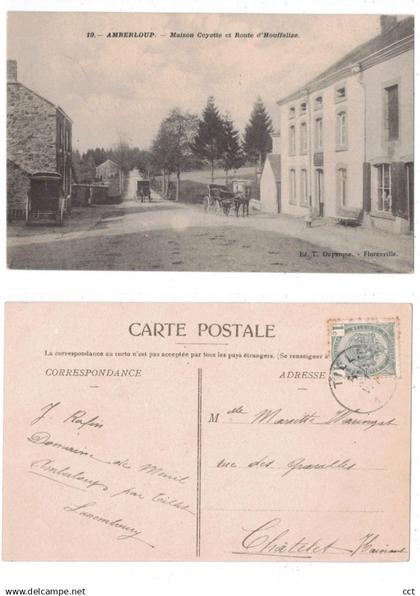 19. - AMBERLOUP. - Maison Coyette et Route d'Houffalize.
Ed. T. Duparque. - Florenville.
CARTE POSTALE
La correspondance au verso n'est pas acceptée par tous les pays étrangers. (Se renseigner
CORRESPONDANCE
ADRESSE
1
J. Rafin
Domaine du Menil
Amberloup, par Tillet
Luxembourg
Melle
rue des Gravelles
Châtelet Hainaut
cct